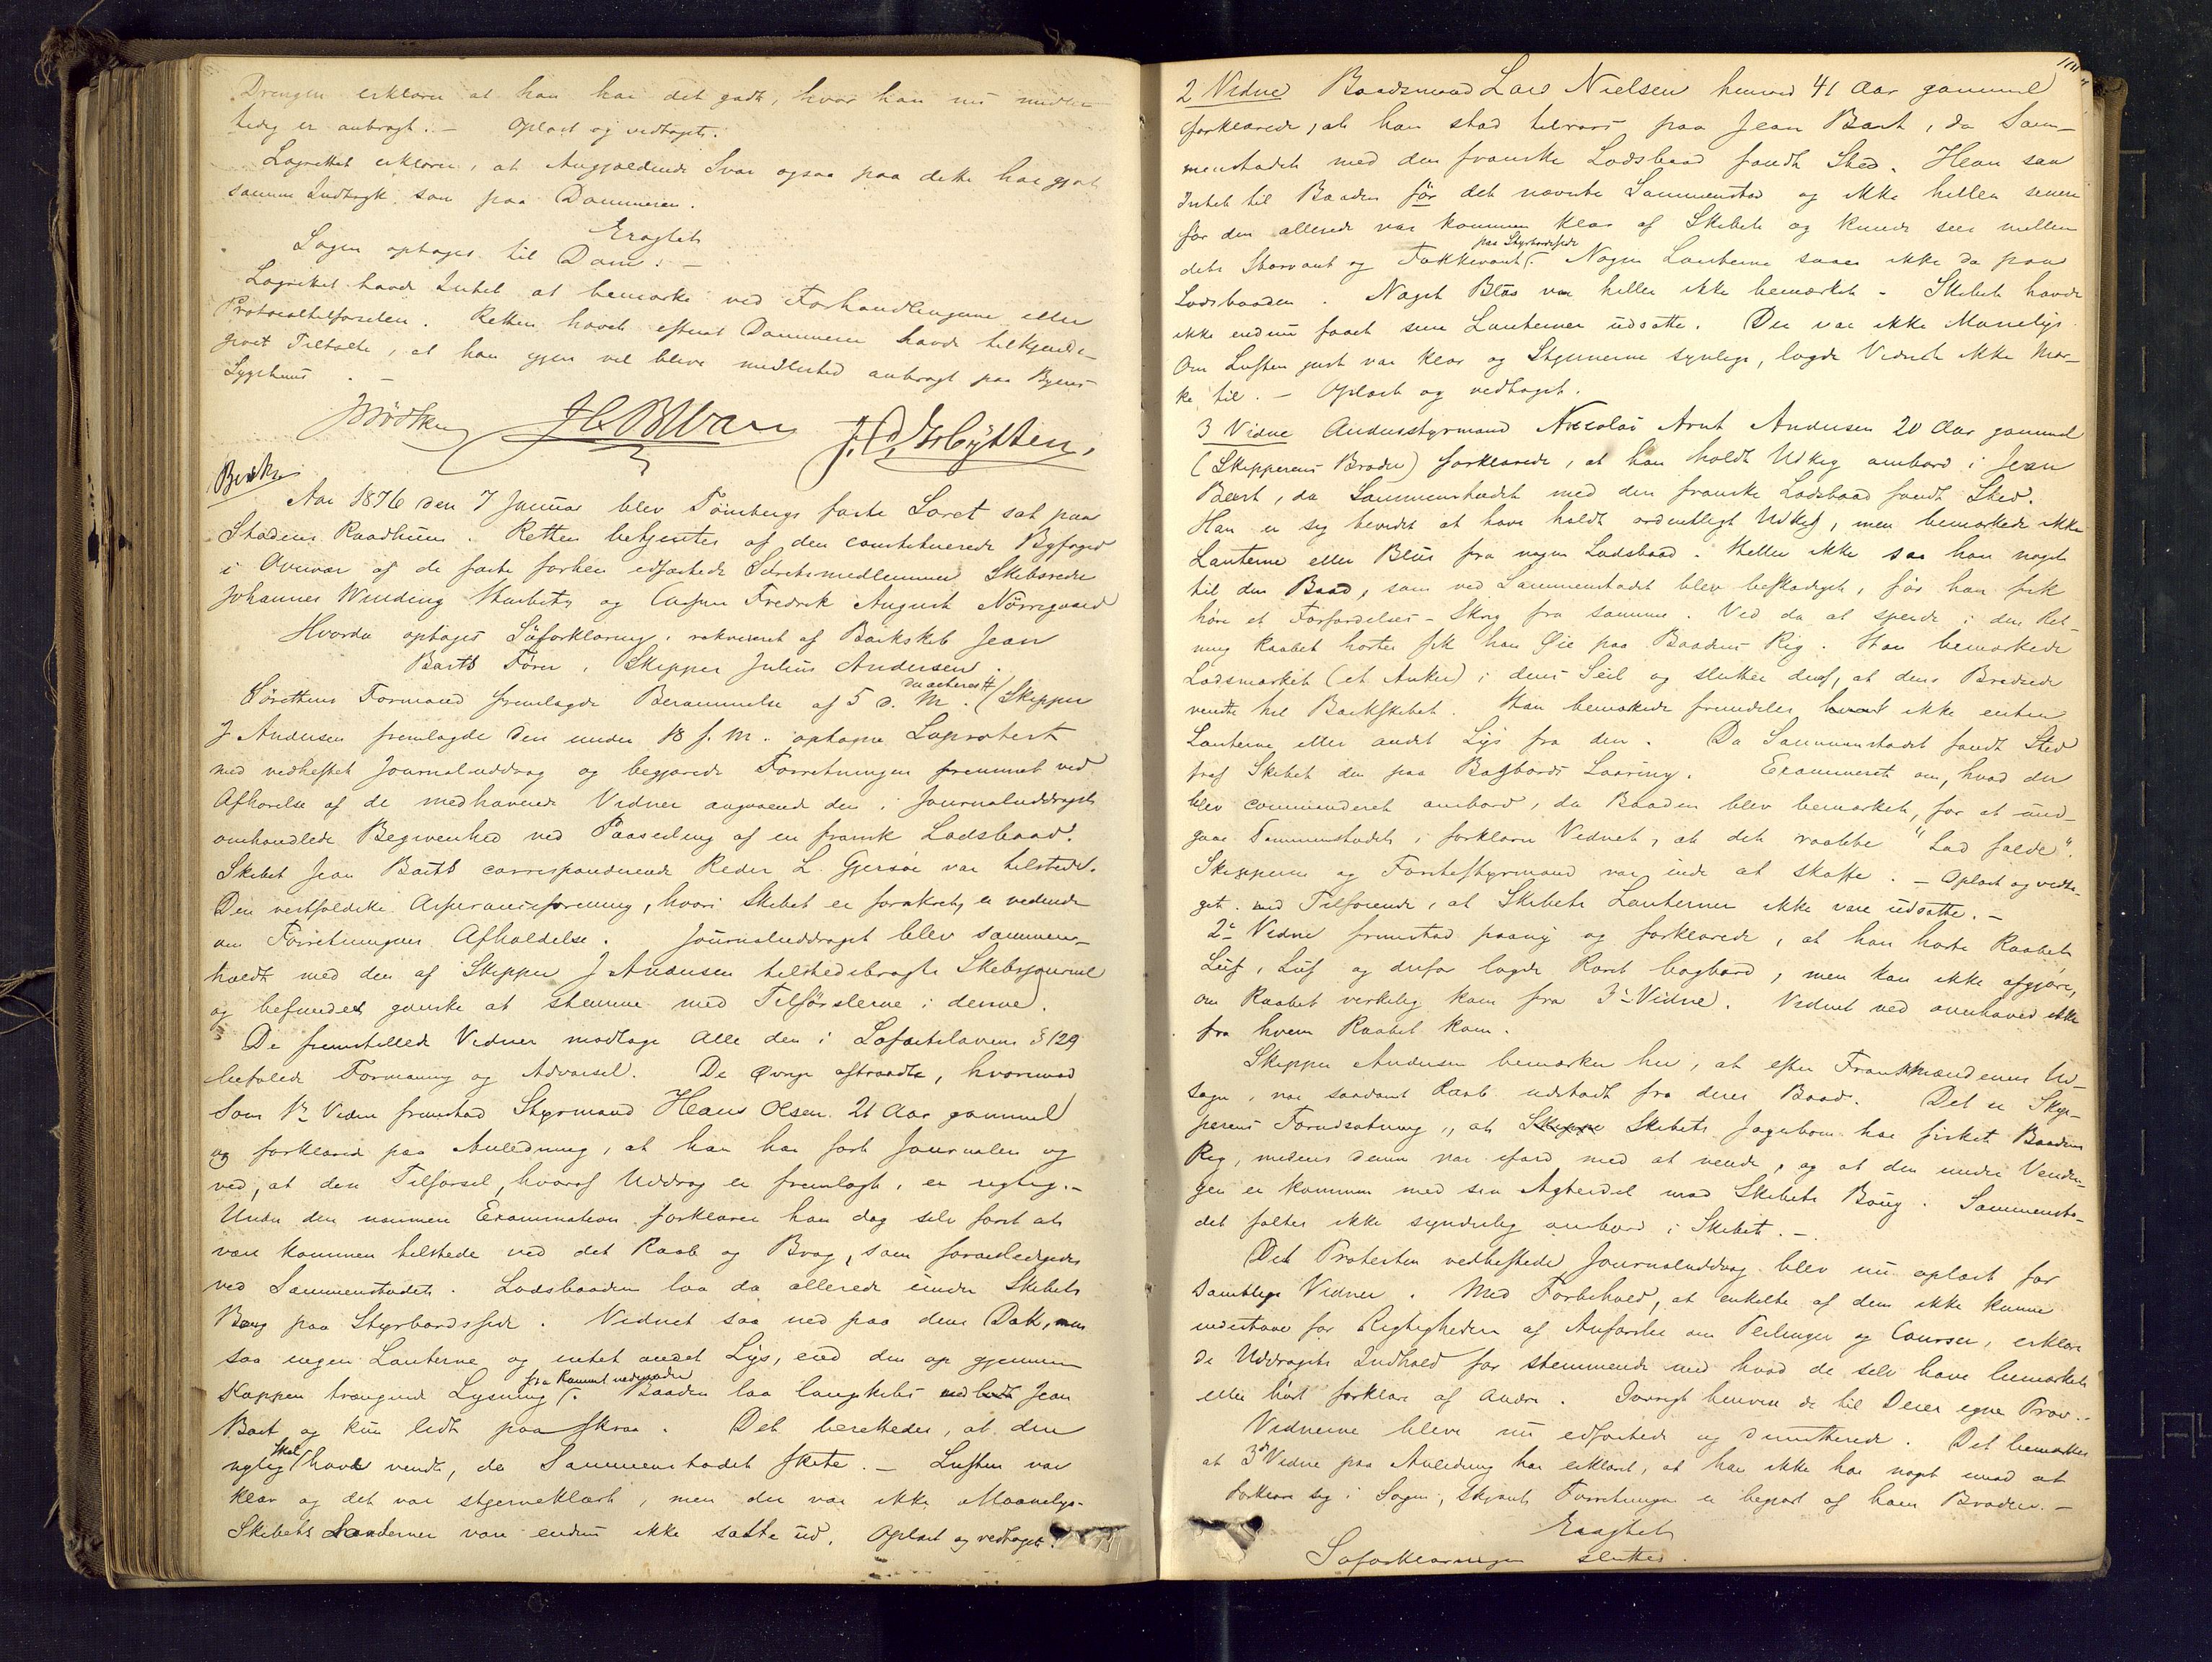 Drengen erklærer at han har det godt, hvor han nu midler-
tidig er anbragt. – Oplæst og vedtaget.
Lagrettet erklærer, at Angjældendes Svar ogsaa paa dette har gjort
samme Indtryk som paa Dommeren.
Eragtet
Sagen optages til Dom. –
Lagrettet havde Intet at bemærke ved Forhandlingerne eller
Protocoltilførselen. Retten hævet efterat Dommeren havde tilkjende-
givet Tiltalte, at han igjen vil blive midlertid anbragt paa Byens
Sygehuus. –
Aar 1876 den 7 Januar blev Tönsbergs faste Söret sat paa
Stadens Raadhuus. Retten betjentes af den constituerede Byfoged
i Overvær af de faste forhen edfæstede Söretsmedlemmer Skibsreder
Johannes Winding og Casper Fredrik August Nörregaard
Hvorda optoges Söforklaring, rekvireret af Barkskib Jean
Barts Förer, Skipper Julius Andersen.
Sörettens Formand fremlagde Berammelse af 5 d. M. (Skipper
J Andersen fremlagde den under 18 f. M. optagne Søprotest
med vedheftet Journaluddrag og begjærede Forretningen fremmet ved
Afhørelse af de medhavende Vidner angaaende den i Journaluddraget
omhandlede Begivenhed ved Paaseiling af en fransk Lodsbaad.
Skibet Jean Barts correspondrende Reder L. Gjersöe var tilstede.
Den vestfoldske Assuranceforening, hvori Skibet er forsikret, er vidende
om Forretningens Afholdelse. Journaluddraget blev sammen-
holdt med den af Skipper J Andersen tilstedebragte Skibsjournal
og befundet ganske at stemme med Tilförslerne i denne.
De fremstillede Vidner modtoge Alle den i Søfartslovens § 129
befalede Formaning og Advarsel. De Øvrige aftraadte, hvorimod
Som 1te Vidne fremstod Styrmand Hans Olsen 21 Aar gammel
og forklarede paa Anledning, at han har ført Journalen og
ved, at den Tilførsel, hvoraf Uddrag er fremlagt, er rigtig. –
Under den nærmere Examination forklarer han dog selv først at
være kommen tilstede ved det Raab og Brag, som foraarsagedes
ved Sammenstødet. Lodsbaaden laa da allerede under Skibets
Boug paa Styrbordsside. Vidnet saa ned paa dens Dæk, men
saa ingen Lanterne og intet andet Lys, end den op gjennem
Kappen trængende Lysning fra Rummet nedenunder. Baaden laa langskibs med Jean
Bart og kun lidt paa skraa. Det berettedes, at den
nylig skal have vendt, da Sammenstødet skete. – Luften var
klar og det var stjerneklart, men der var ikke Maanelys.
Skibets Lanterner vare endnu ikke satte ud. Oplæst og vedtaget.
2 Vidne Baadsmand Lars Nielsen henved 41 Aar gammel
forklarede, at han stod tilrors paa Jean Bart, da Sam-
menstødet med den franske Lodsbaad fandt Sted. Han saa
Intet til Baaden før det nævnte Sammenstød og ikke heller senere
før den allerede var kommen klar af Skibet og kunde sees mellem
dets Storvant og Fokkevant paa Styrbordsside. Nogen Lanterne saaes ikke da paa
Lodsbaaden. Noget Blus var heller ikke bemærket. – Skibet havde
ikke endnu faaet sine Lanterner udsatte. Der var ikke Maanelys.
Om Luften just var klar og Stjernerne synlige, lagde Vidnet ikke Mær-
ke til. – Oplæst og vedtaget.
3 Vidne Andenstyrmand Nicolai Arnt Andersen 20 Aar gammel
(Skipperens Broder) forklarede, at han holdt Udkig ombord i Jean
Bart, da Sammenstødet med den franske Lodsbaad fandt Sted.
Han er sig bevidst at have holdt ordentligt Udkig, men bemærkede ikke
Lanterne eller Blus fra nogen Lodsbaad. Heller ikke saa han noget
til den Baad, som ved Sammenstødet blev beskadiget, før han fik
høre et Forfærdelses-Skrig fra samme. Ved da at speide i den Ret-
ning Raabet hørtes fik han Øie paa Baadens Rig. Han bemærkede
Lodsmærket (et Anker) i dens Seil og slutter deraf, at dens Bredside
vendte til Barkskibet. Han bemærkede fremdeles ikke enten
Lanterne eller andet Lys fra den. Da Sammenstødet fandt Sted
traf Skibet den paa Bagbords Laaring. Examineret om, hvad der
blev commanderet ombord, da Baaden blev bemærket, for at und-
gaae Sammenstødet, forklarer Vidnet, at det raabte "Lad falde".
Skipperen og Førstestyrmand var inde at skaffe. – Oplæst og vedta-
get med Tilføiende, at Skibets Lanterner ikke vare udsatte. –
2det Vidne fremstod paany og forklarede, at han hørte Raabet
Luf, Luf og derfor lagde Roret bagbord, men kan ikke afgjøre,
om Raabet virkelig kom fra 3die Vidne. Vidnet ved overhoved ikke
fra hvem Raabet kom.
Skipper Andersen bemærker her, at efter Franskmændenes Ud-
sagn, var saadant Raab udstødt fra deres Baad. Det er Skip-
perens Forudsætning, at Skibets Jagerbom har fisket Baadens
Rig, medens denne var ifærd med at vende, og at den under Vendin-
gen er kommen med sin Agterdel mod Skibets Boug. Sammenstø-
det føltes ikke synderlig ombord i Skibet. –
Det Protesten vedheftede Journaluddrag blev nu oplæst for
samtlige Vidner. Med Forbehold, at enkelte af dem ikke kunne
indestaae for Rigtigheden af Anførsler om Peilinger og Courser, erklære
de Uddragets Indhold for stemmende med hvad de selv have bemærket
eller hørt forklare af Andre. Iøvrigt henvise de til Deres egne Prov. –
Vidnerne bleve nu edfæstede og dimitterede. Det bemærkes
at 3die Vidne paa Anledning har erklæret, at han ikke har noget imod at
forklare sig i Sagen, skjønt Forretningen er begjært af hans Broder. –
Eragtet
Søforklaringen sluttes.